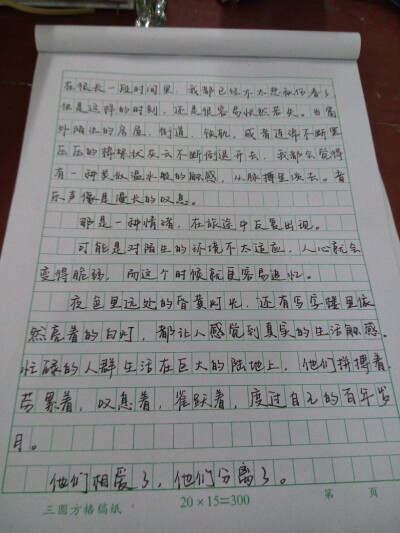 在很长一段时间里，我都已经不太想敢伤春了
但是这样的时刻，还是很容易怅然若失。当窗
外陌生的房屋，街道，铁轨，或者连绵不断黑
压压的棒球状灰云不断倒退开去，我都会觉得
有一种类似温水般的触感，从脉搏里淡去。音
乐声像是漫长的叹息。
那是一种情绪，在旅途中反复出现。
可能是对陌生的环境不太适应，人心就会
变得脆弱，而这个时候就更容易追忆。
夜色里远处的昏黄灯光，还有写字楼里依
然亮着的白灯，都让人感觉到真实的生活触感。
忙碌的人群生活在巨大的陆地上，他们拼搏着，
劳累着，叹息着，雀跃着，度过自己的百年岁
月。
他们相爱了，他们分离了。
三圆方格稿纸 20×15=300 第 页